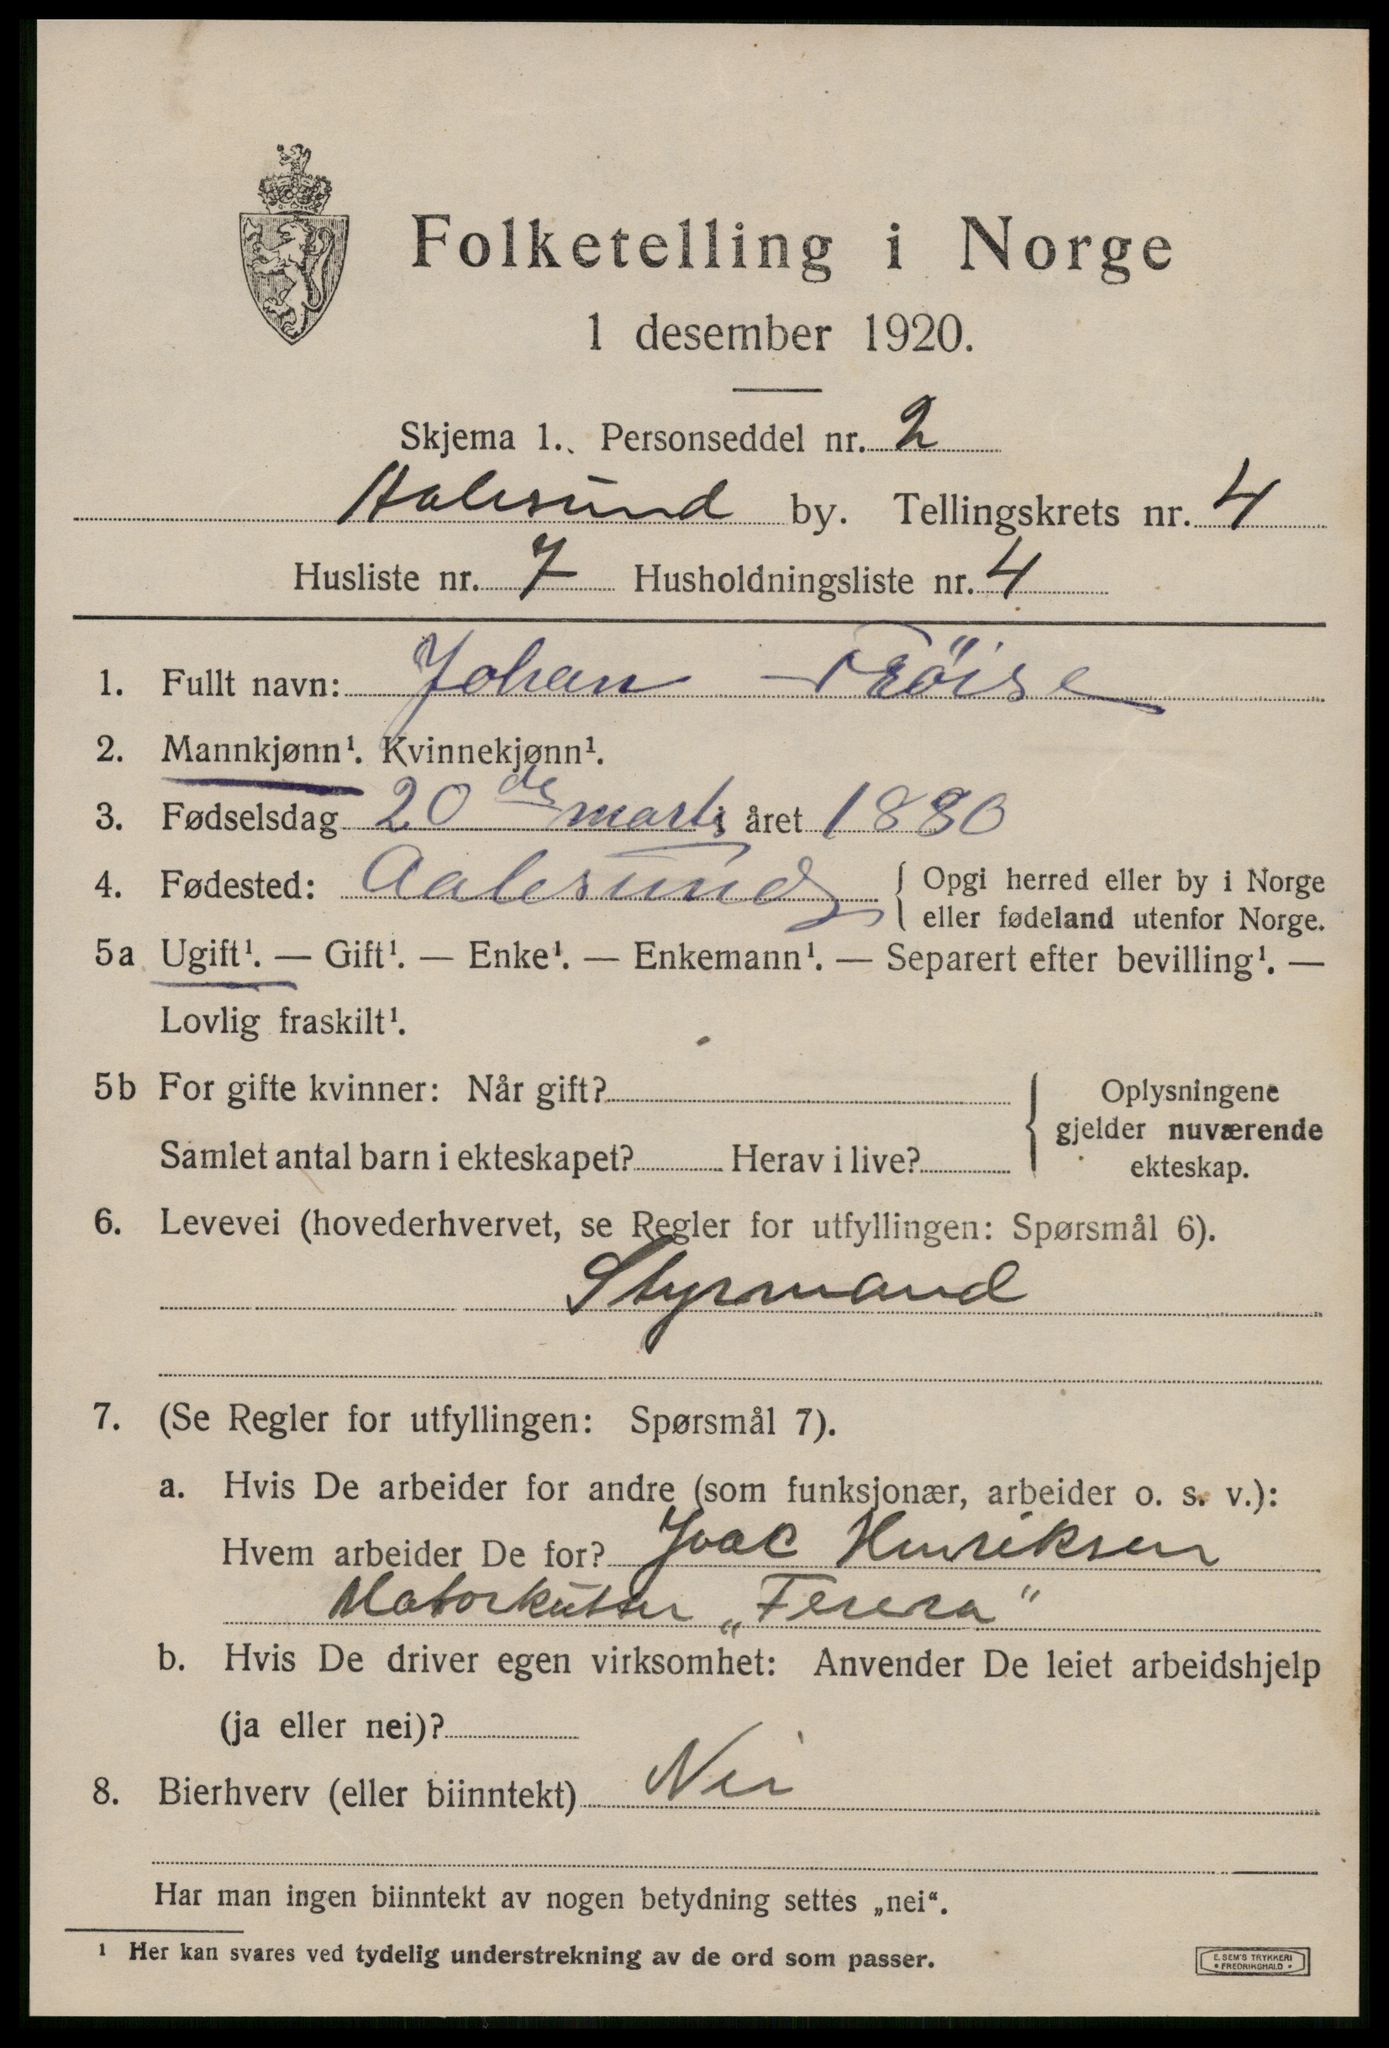 Folketelling i Norge
1 desember 1920.
Skjema 1. Personseddel nr. 2
Aalesund by. Tellingskrets nr. 4
Husliste nr. 7 Husholdningsliste nr. 4
1. Fullt navn: Johan Fröise
2. Mannkjønn¹. Kvinnekjønn¹.
3. Fødselsdag 20 de marts i året 1880
4. Fødested: Aalesund { Opgi herred eller by i Norge
eller fødeland utenfor Norge.
5a Ugift¹. — Gift¹. — Enke¹. — Enkemann¹. — Separert efter bevilling¹. —
Lovlig fraskilt¹.
5b For gifte kvinner: Når gift?
Samlet antal barn i ekteskapet? Herav i live?
{ Oplysningene
gjelder nuværende
ekteskap.
6. Levevei (hovederhvervet, se Regler for utfyllingen: Spørsmål 6).
Styrmand
7. (Se Regler for utfyllingen: Spørsmål 7).
a. Hvis De arbeider for andre (som funksjonær, arbeider o. s. v.):
Hvem arbeider De for? Henriksen
Motorkutter
b. Hvis De driver egen virksomhet: Anvender De leiet arbeidshjelp
(ja eller nei)?
8. Bierhverv (eller biinntekt) Nei
Har man ingen biinntekt av nogen betydning settes „nei“.
¹ Her kan svares ved tydelig understrekning av de ord som passer.
E. SEM'S TRYKKERI
• FREDRIKSHALD •